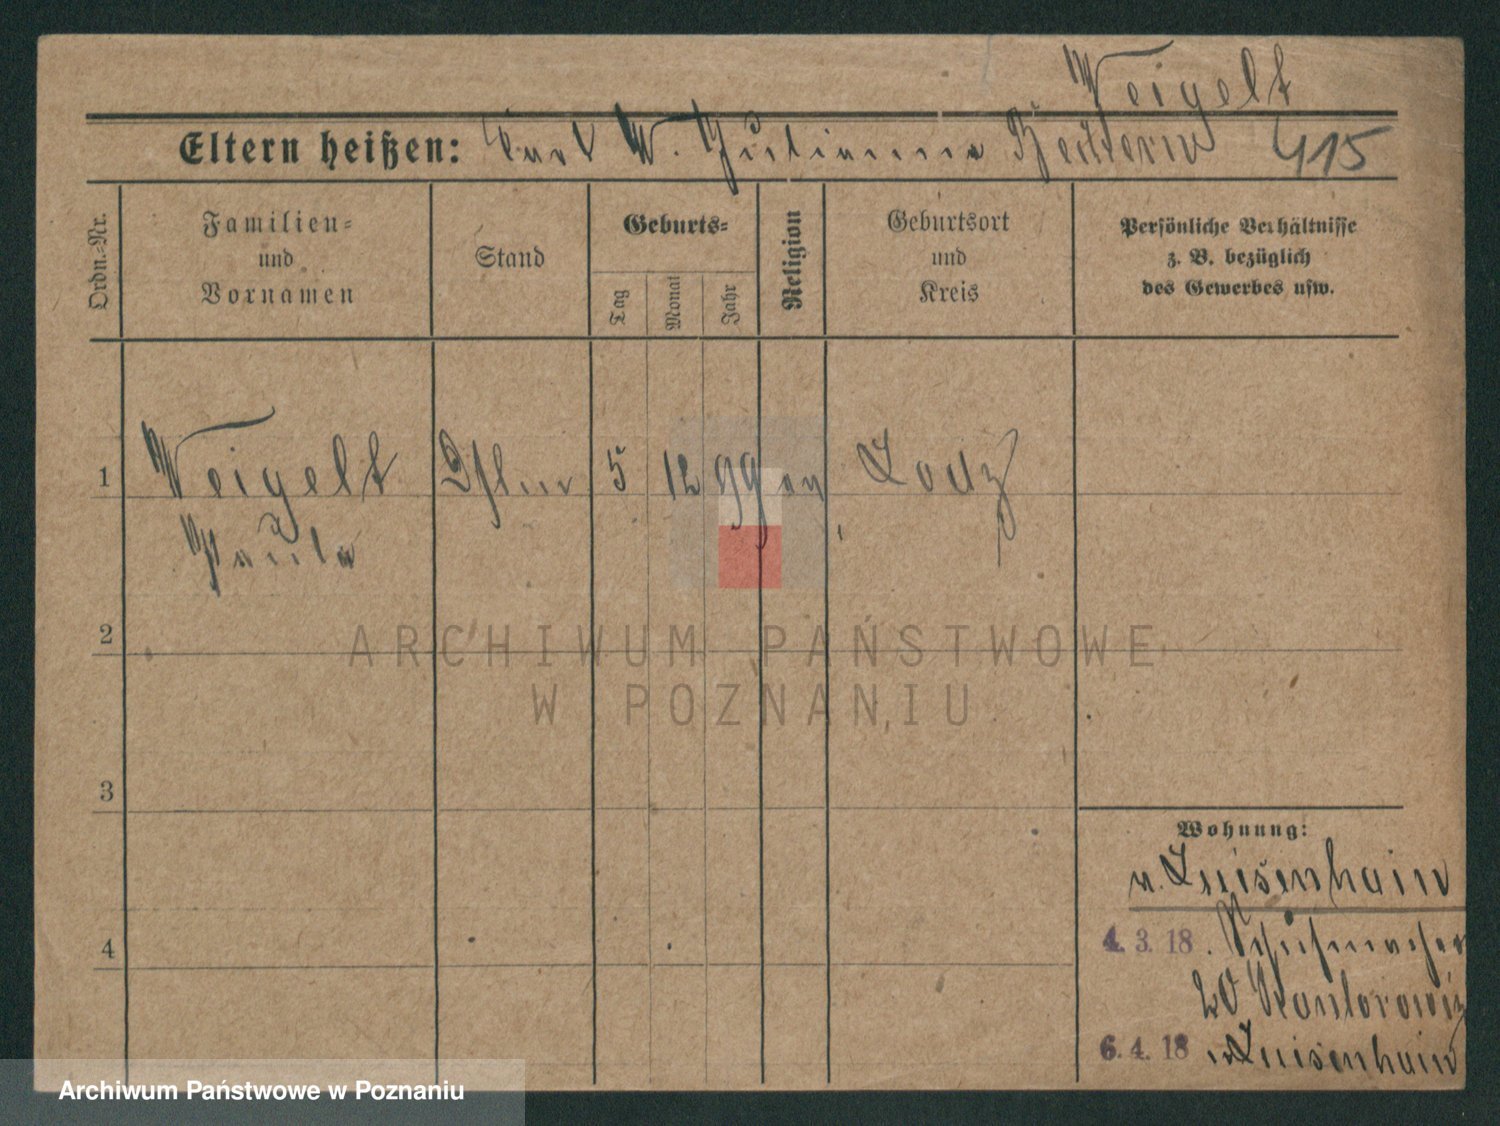 Weigelt
Eltern heißen: Karl W. Julianna
415
Ordn.-Nr.
Familien-
und
Vornamen
Stand
Geburts-
Tag
Monat
Jahr
Religion
Geburtsort
und
Kreis
Persönliche Verhältnisse
z. B. bezüglich
des Gewerbes usw.
1 Weigelt 5 12 99 ev Lodz
Paula
2
3
4
Wohnung:
n. Luisenhain
4. 3. 18. Schuhmacher
20 Kantorowicz
6. 4. 18 n Luisenhain
ARCHIWUM PAŃSTWOWE
W POZNANIU
Archiwum Państwowe w Poznaniu